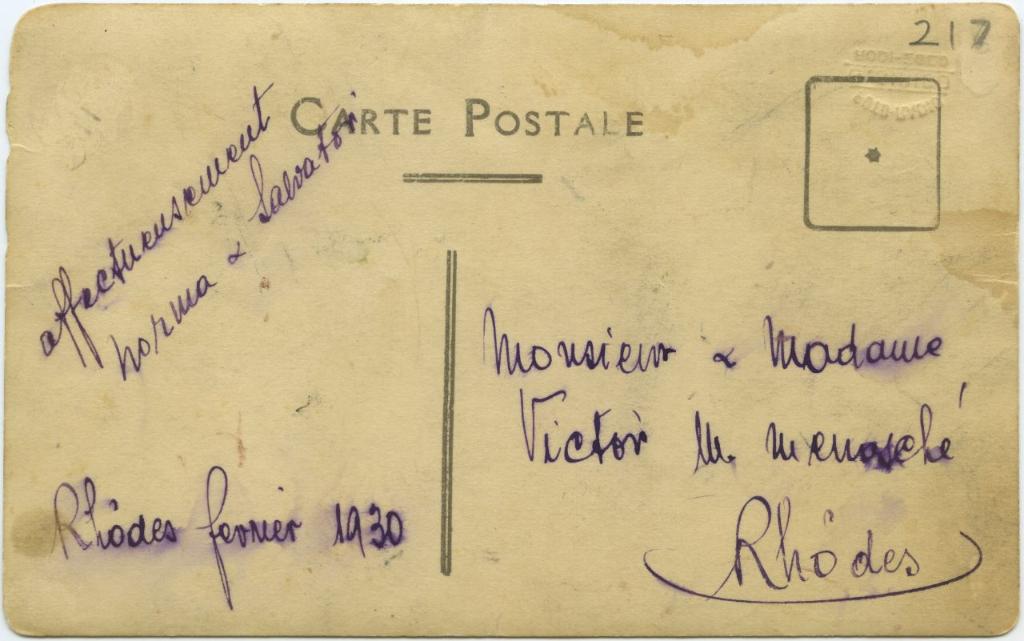 217
CARTE POSTALE
affectueusement
Norma & Salvator
Rhôdes fevrier 1930
Monsieur & Madame
Victor M. Menasché
Rhôdes